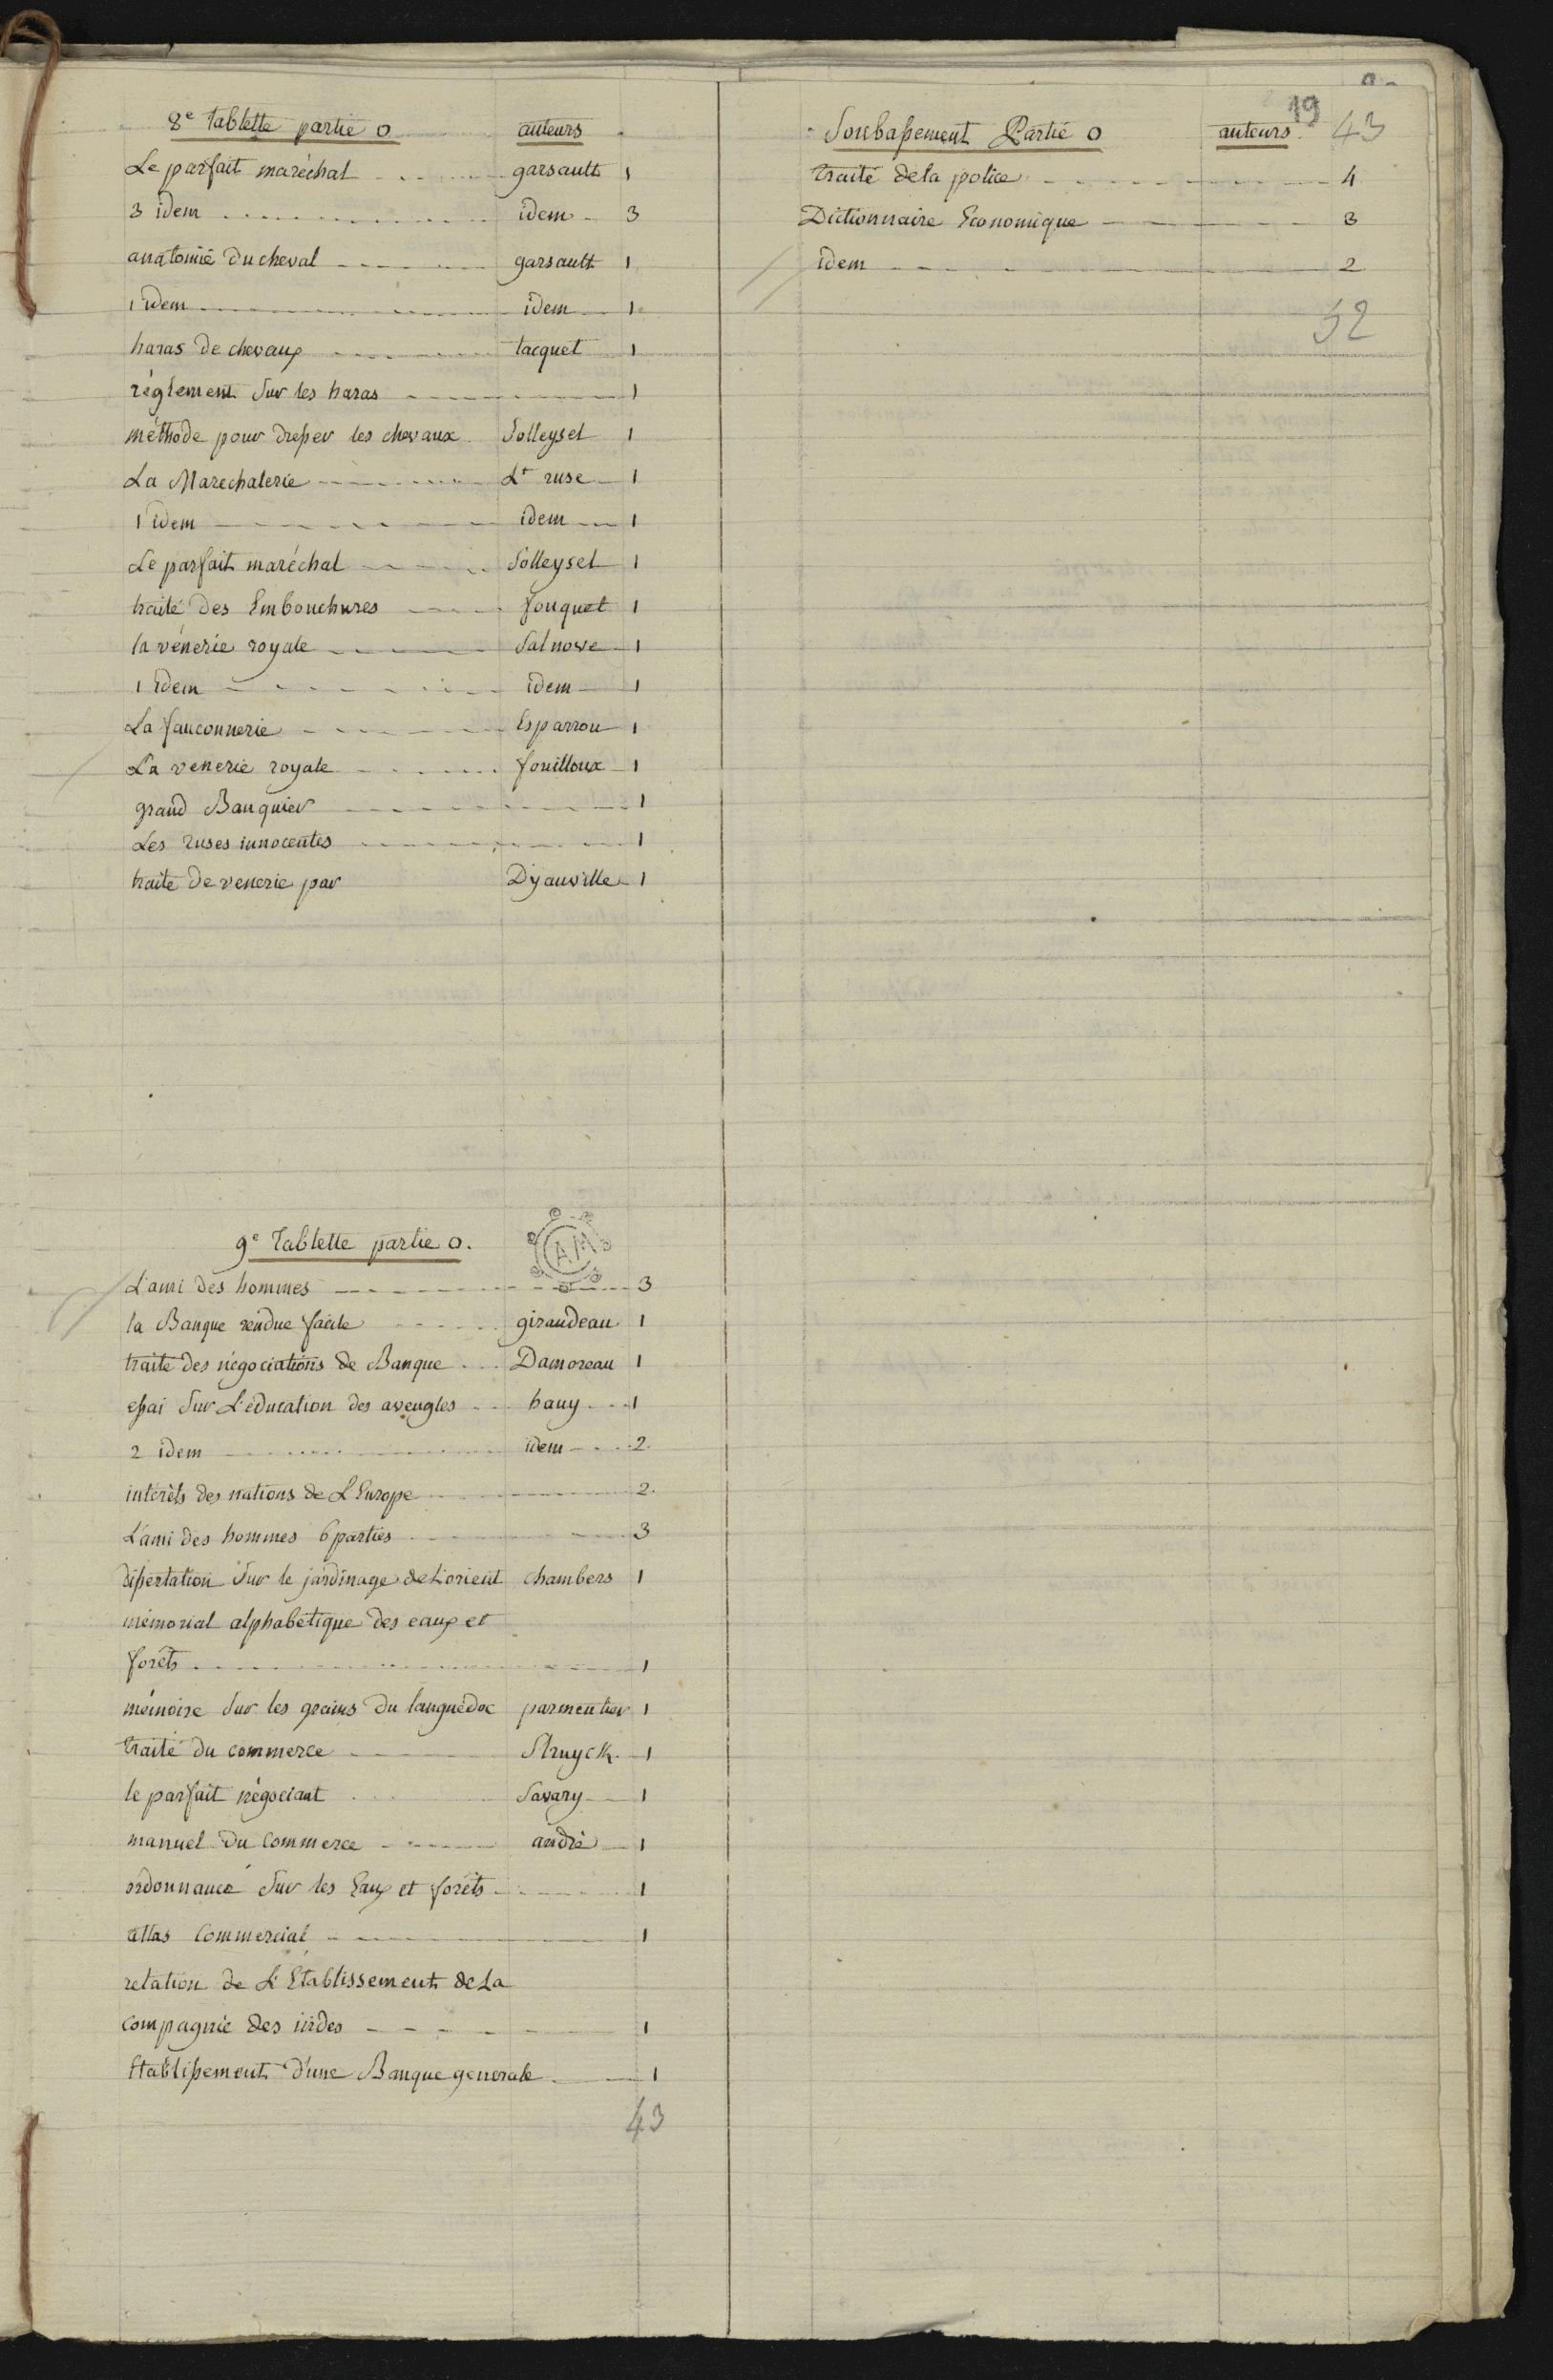 8e Tablette partie O auteurs
Le parfait maréchal garsault 1
3 idem idem 3
anatomie du cheval garsault 1
1 idem idem 1
haras de chevaux tacquet 1
réglement sur les haras 1
méthode pour dresser les chevaux Solleysel 1
La Marechalerie Lt ruse 1
1 idem idem 1
Le parfait maréchal Solleysel 1
traité des Embouchures fouquet 1
la vénerie royale Salnove 1
1 idem idem 1
La fauconnerie Esparron 1
La venerie royale fouilloux 1
grand Banquier 1
Les ruses innocentes 1
traité de venerie par Dyauville 1
9e Tablette partie O.
AM
L'ami des hommes 3
la Banque rendue facile giraudeau 1
traité des négociations de Banque Damoreau 1
essai sur L'éducation des aveugles hauy 1
2 idem idem 2
intérêts des nations de L'Europe 2
L'ami des hommes 6 parties 3
dissertation sur le jardinage de L'orient chambers 1
mémorial alphabétique des eaux et
forêts 1
mémoire sur les grains du languedoc parmentier 1
traité du commerce Struyck 1
le parfait négociant Savary 1
manuel du Commerce andré 1
ordonnance sur les Eaux et forêts 1
atlas Commercial 1
relation de L'Etablissement de La
Compagnie des indes 1
Etablissement d'une Banque generale 1
43
19
Soubassement Partie O auteurs 43
traité de la police 4
Dictionnaire Economique 3
idem 2
52